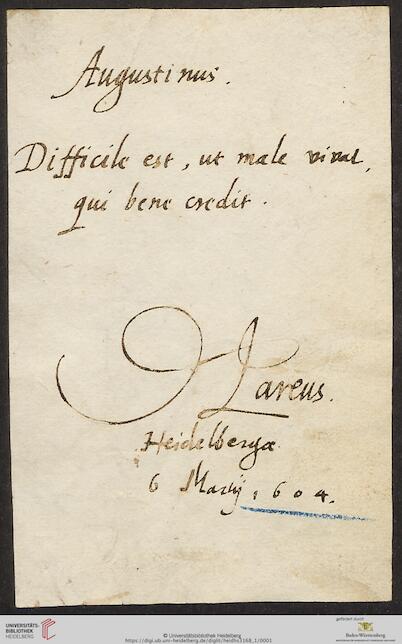 Augustinus.
Difficile est, ut male vivat,
qui bene credit.
Pareus.
Heidelbergæ
6 Martij 1604.
UNIVERSITÄTS-
BIBLIOTHEK
HEIDELBERG
© Universitätsbibliothek Heidelberg
https://digi.ub.uni-heidelberg.de/diglit/heidhs3168_1/0001
gefördert durch
Baden-Württemberg